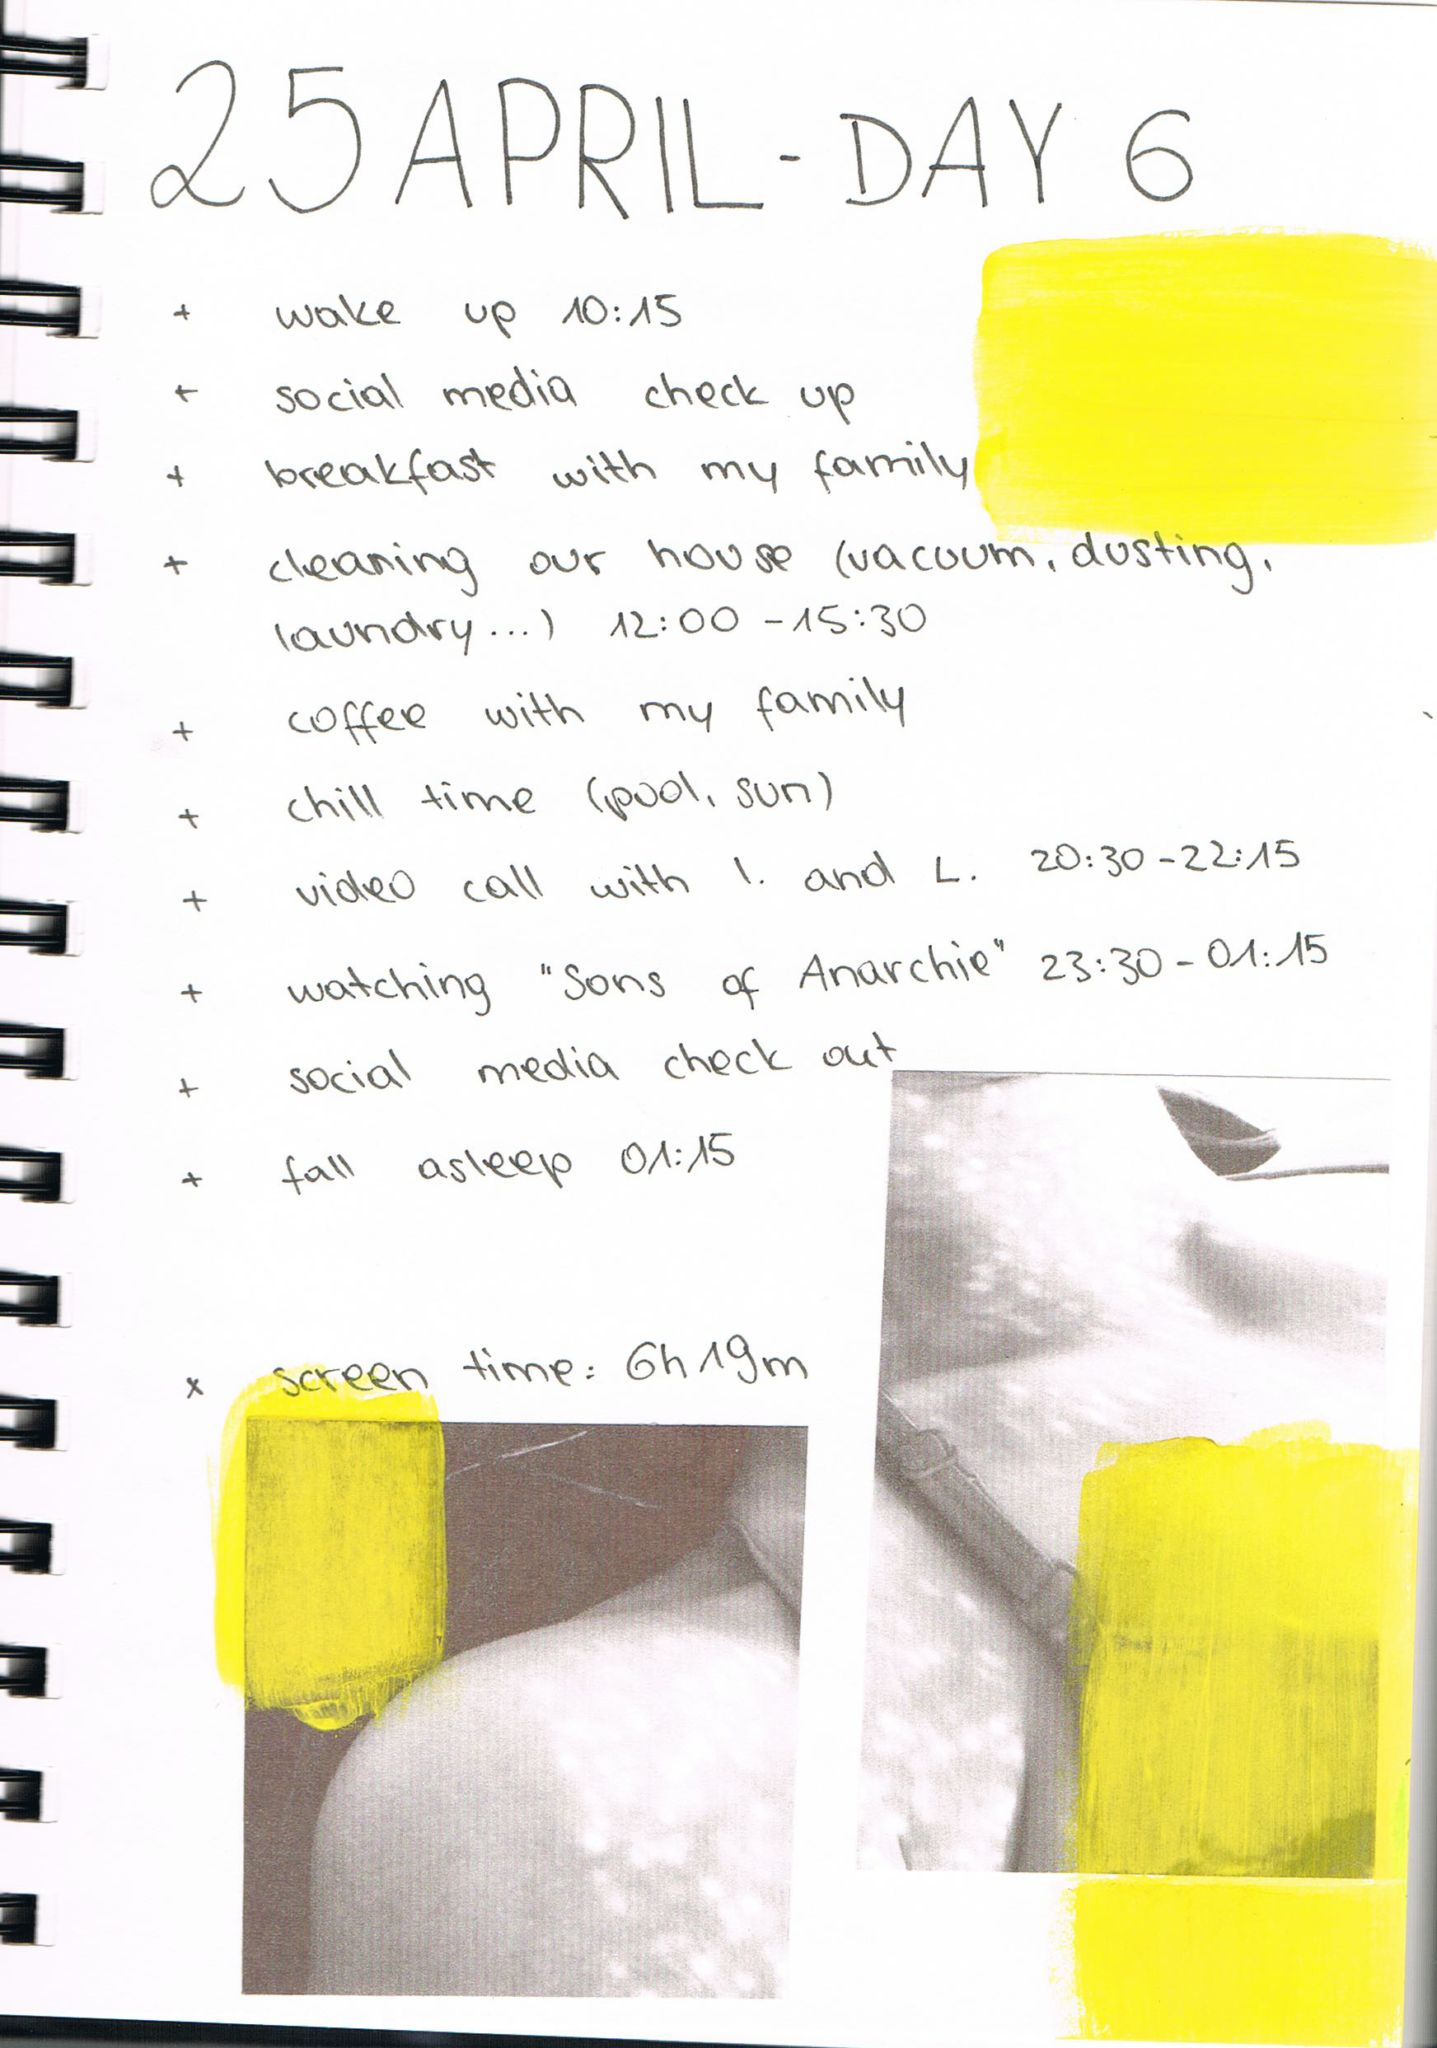 25 APRIL - DAY 6
+ wake up 10:15
+ social media check up
+ breakfast with my family
+ cleaning our house (vacuum, dusting,
laundry...) 12:00 - 15:30
+ coffee with my family
+ chill time (pool, sun)
+ video call with I. and L. 20:30 - 22:15
+ watching "Sons of Anarchie" 23:30 - 01:15
+ social media check out
+ fall asleep 01:15
x screen time: 6h 19m